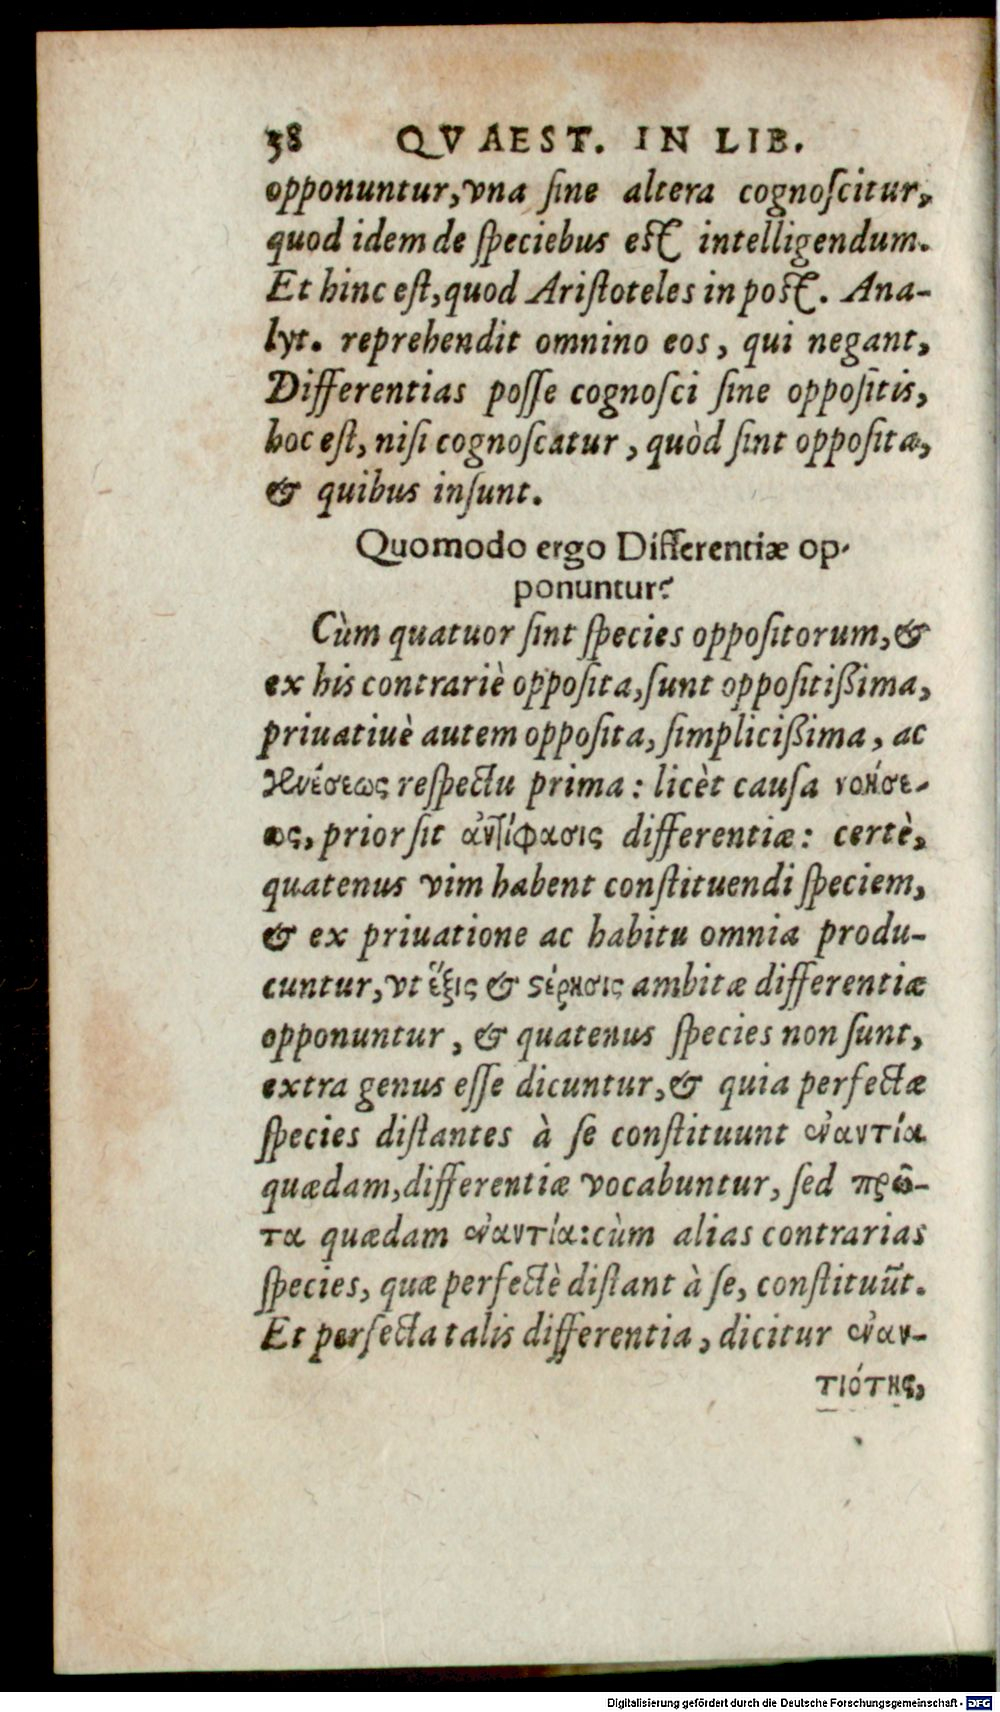 38 QVAEST. IN LIB.
opponuntur, vna ſine altera cognoſcitur,
quod idem de ſpeciebus eſt intelligendum.
Et hinc eſt, quod Ariſtoteles in poſt. Ana-
lyt. reprehendit omnino eos, qui negant,
Differentias poſſe cognoſci ſine oppoſitis,
hoc eſt, niſi cognoſcatur, quòd ſint oppoſita,
& quibus inſunt.
Quomodo ergo Differentiæ op-
ponuntur?
Cùm quatuor ſint ſpecies oppoſitorum, &
ex his contrariè oppoſita, ſunt oppoſitißima,
priuatiuè autem oppoſita, ſimplicißima, ac
γενέσεως reſpectu prima: licèt cauſa νοήσε-
ως, prior ſit ἀντίφασις differentiæ: certè,
quatenus vim habent conſtituendi ſpeciem,
& ex priuatione ac habitu omnia produ-
cuntur, vt ἕξις & ϛέρησις ambitæ differentiæ
opponuntur, & quatenus ſpecies non ſunt,
extra genus eſſe dicuntur, & quia perfectæ
ſpecies diſtantes à ſe conſtituunt ἐναντία
quædam, differentiæ vocabuntur, ſed πρῶ-
τα quædam ἐναντία: cùm alias contrarias
ſpecies, quæ perfectè diſtant à ſe, conſtituūt.
Et perfecta talis differentia, dicitur ἐναν-
τιότης,
Digitalisierung gefördert durch die Deutsche Forschungsgemeinschaft - DFG